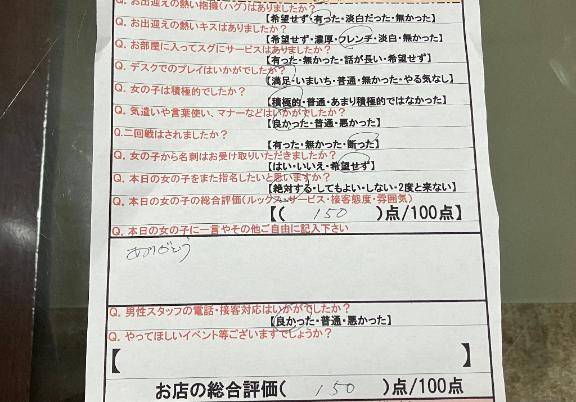 Q. お出迎えの熱い抱擁(ハグ)はありましたか?
【希望せず・有った・淡白だった・無かった】
Q. お出迎えの熱いキスはありましたか?
【希望せず・濃厚・フレンチ・淡白・無かった】
Q. お部屋に入ってスグにサービスはありましたか?
【有った・無かった・話が長い・希望せず】
Q. デスクでのプレイはいかがでしたか?
【満足・いまいち・普通・無かった・やる気なし】
Q. 女の子は積極的でしたか?
【積極的・普通・あまり積極的ではなかった】
Q. 気遣いや言葉使い、マナーなどはいかがでしたか?
【良かった・普通・悪かった】
Q.二回戦はされましたか?
【有った・無かった・断った】
Q. 女の子から名刺はお受け取りいただきましたか?
【はい・いいえ・希望せず】
Q. 本日の女の子をまた指名したいと思いますか?
【絶対する・してもよい・しない・2度と来ない】
Q. 本日の女の子の総合評価(ルックス・サービス・接客態度・雰囲気)
【( 150 )点/100点】
Q. 本日の女の子に一言やその他ご自由に記入下さい
ありがとう
Q. 男性スタッフの電話・接客対応はいかがでしたか?
【良かった・普通・悪かった】
Q. やってほしいイベント等ございますでしょうか?
【 】
お店の総合評価( 150 )点/100点